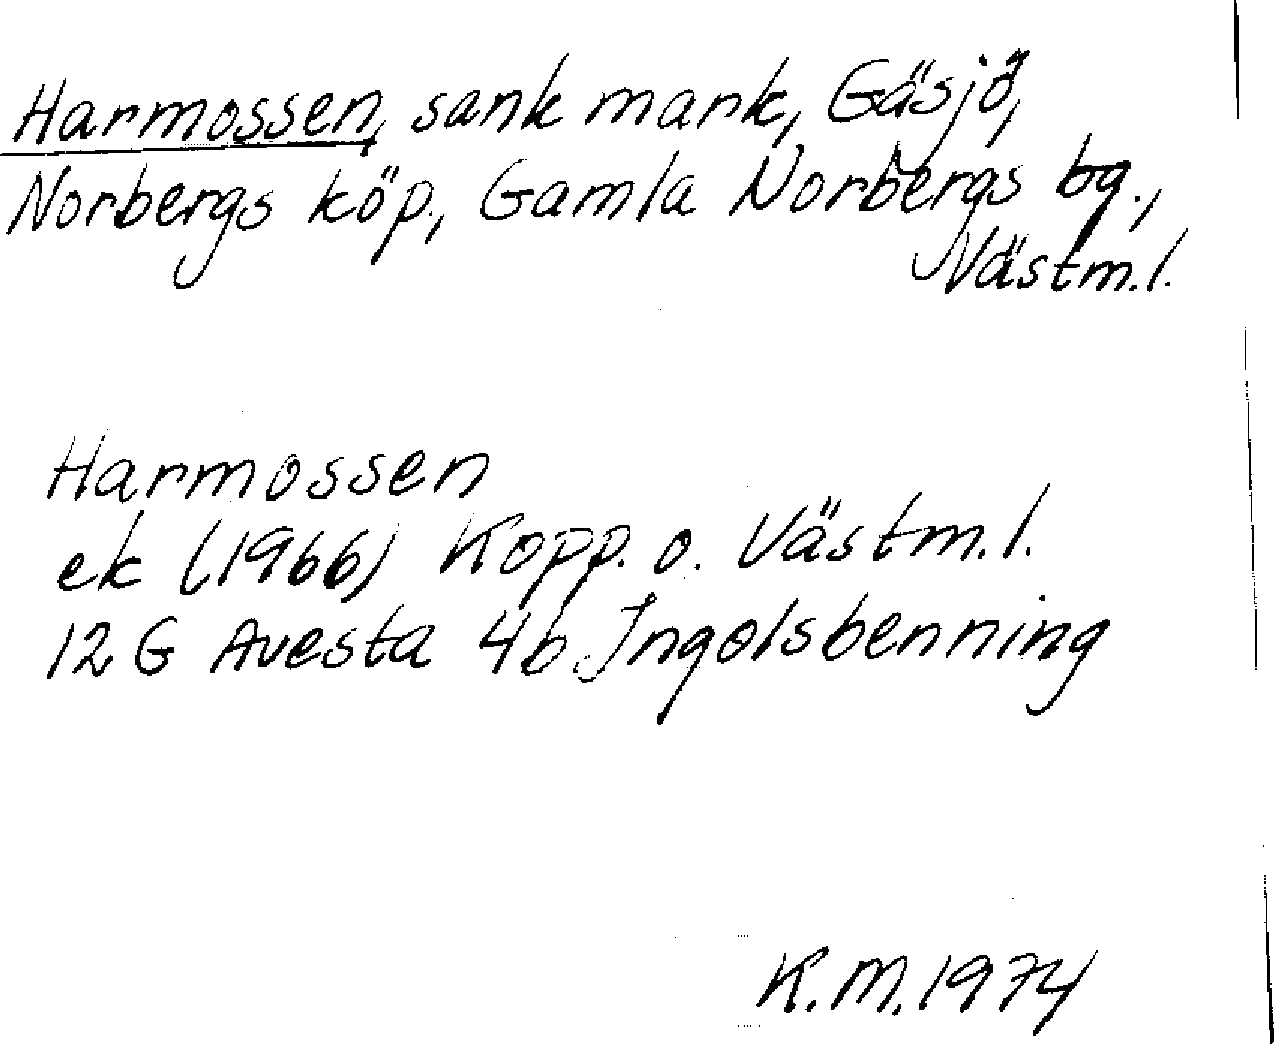 Harmossen, sank mark, Gäsjö,
Norbergs köp., Gamla Norbergs bg.,
Västm.l.
Harmossen
ek (1966) Kopp. o. Västm.l.
12 G Avesta 4b Ingolsbenning
K.M. 1974